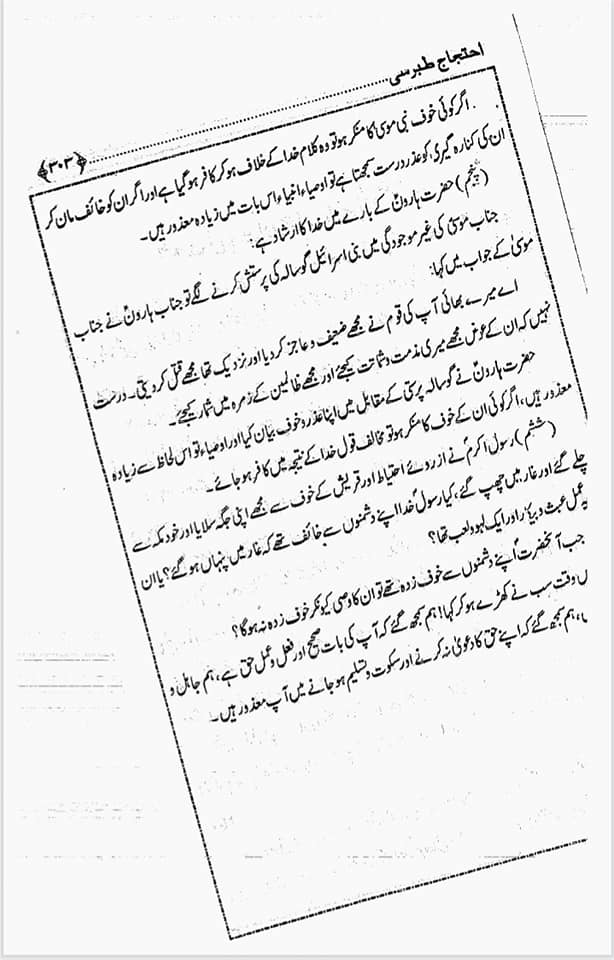 احتجاج طبرسی ............ ﴿۳۰۳﴾
اگر کوئی خوف نبی موسیٰ کا منکر ہو تو وہ کلام خدا کے خلاف ہو کر کافر ہو گیا ہے اور اگر ان کو خائف مان کر
ان کی کنارہ گیری کو عذر درست سمجھتا ہے تو اوصیاء انبیاء اس بات میں زیادہ معذور ہیں۔
(پنجم) حضرت ہارونؑ کے بارے میں خدا کا ارشاد ہے:
جناب موسیٰؑ کی غیر موجودگی میں بنی اسرائیل گوسالہ کی پرستش کرنے لگے تو جناب ہارونؑ نے جناب
موسیٰ کے جواب میں کہا:
اے میرے بھائی آپ کی قوم نے مجھے ضعیف و عاجز کر دیا اور نزدیک تھا مجھے قتل کر دیتی۔ درست
نہیں کہ ان کے عوض مجھے میری مذمت و شماتت کیجئے اور مجھے ظالمین کے زمرہ میں شمار کیجئے۔
حضرت ہارونؑ نے گوسالہ پرستی کے مقابل میں اپنا عذر و خوف بیان کیا اور اوصیاء تو اس لحاظ سے زیادہ
معذور ہیں، اگر کوئی ان کے خوف کا منکر ہو تو مخالف قول خدا کے نتیجہ میں کافر ہو جائے۔
(ششم) رسول اکرمؐ نے از روئے احتیاط اور قریش کے خوف سے مجھے اپنی جگہ سلایا اور خود مکہ سے
چلے گئے اور غار میں چھپ گئے، کیا رسولؐ خدا اپنے دشمنوں سے خائف تھے کہ غار میں پنہاں ہو گئے؟ یا ان
یہ عمل عبث و بیکار اور ایک لہو و لعب تھا؟
جب آنحضرتؐ اپنے دشمنوں سے خوف زدہ تھے تو ان کا وصی کیونکر خوف زدہ نہ ہوگا؟
وقت سب نے کھڑے ہو کر کہا! ہم سمجھ گئے کہ آپ کی بات صحیح اور فعل و عمل حق ہے، ہم جاہل و
، ہم سمجھ گئے کہ اپنے حق کا دعویٰ نہ کرنے اور سکوت و تسلیم ہو جانے میں آپ معذور ہیں۔